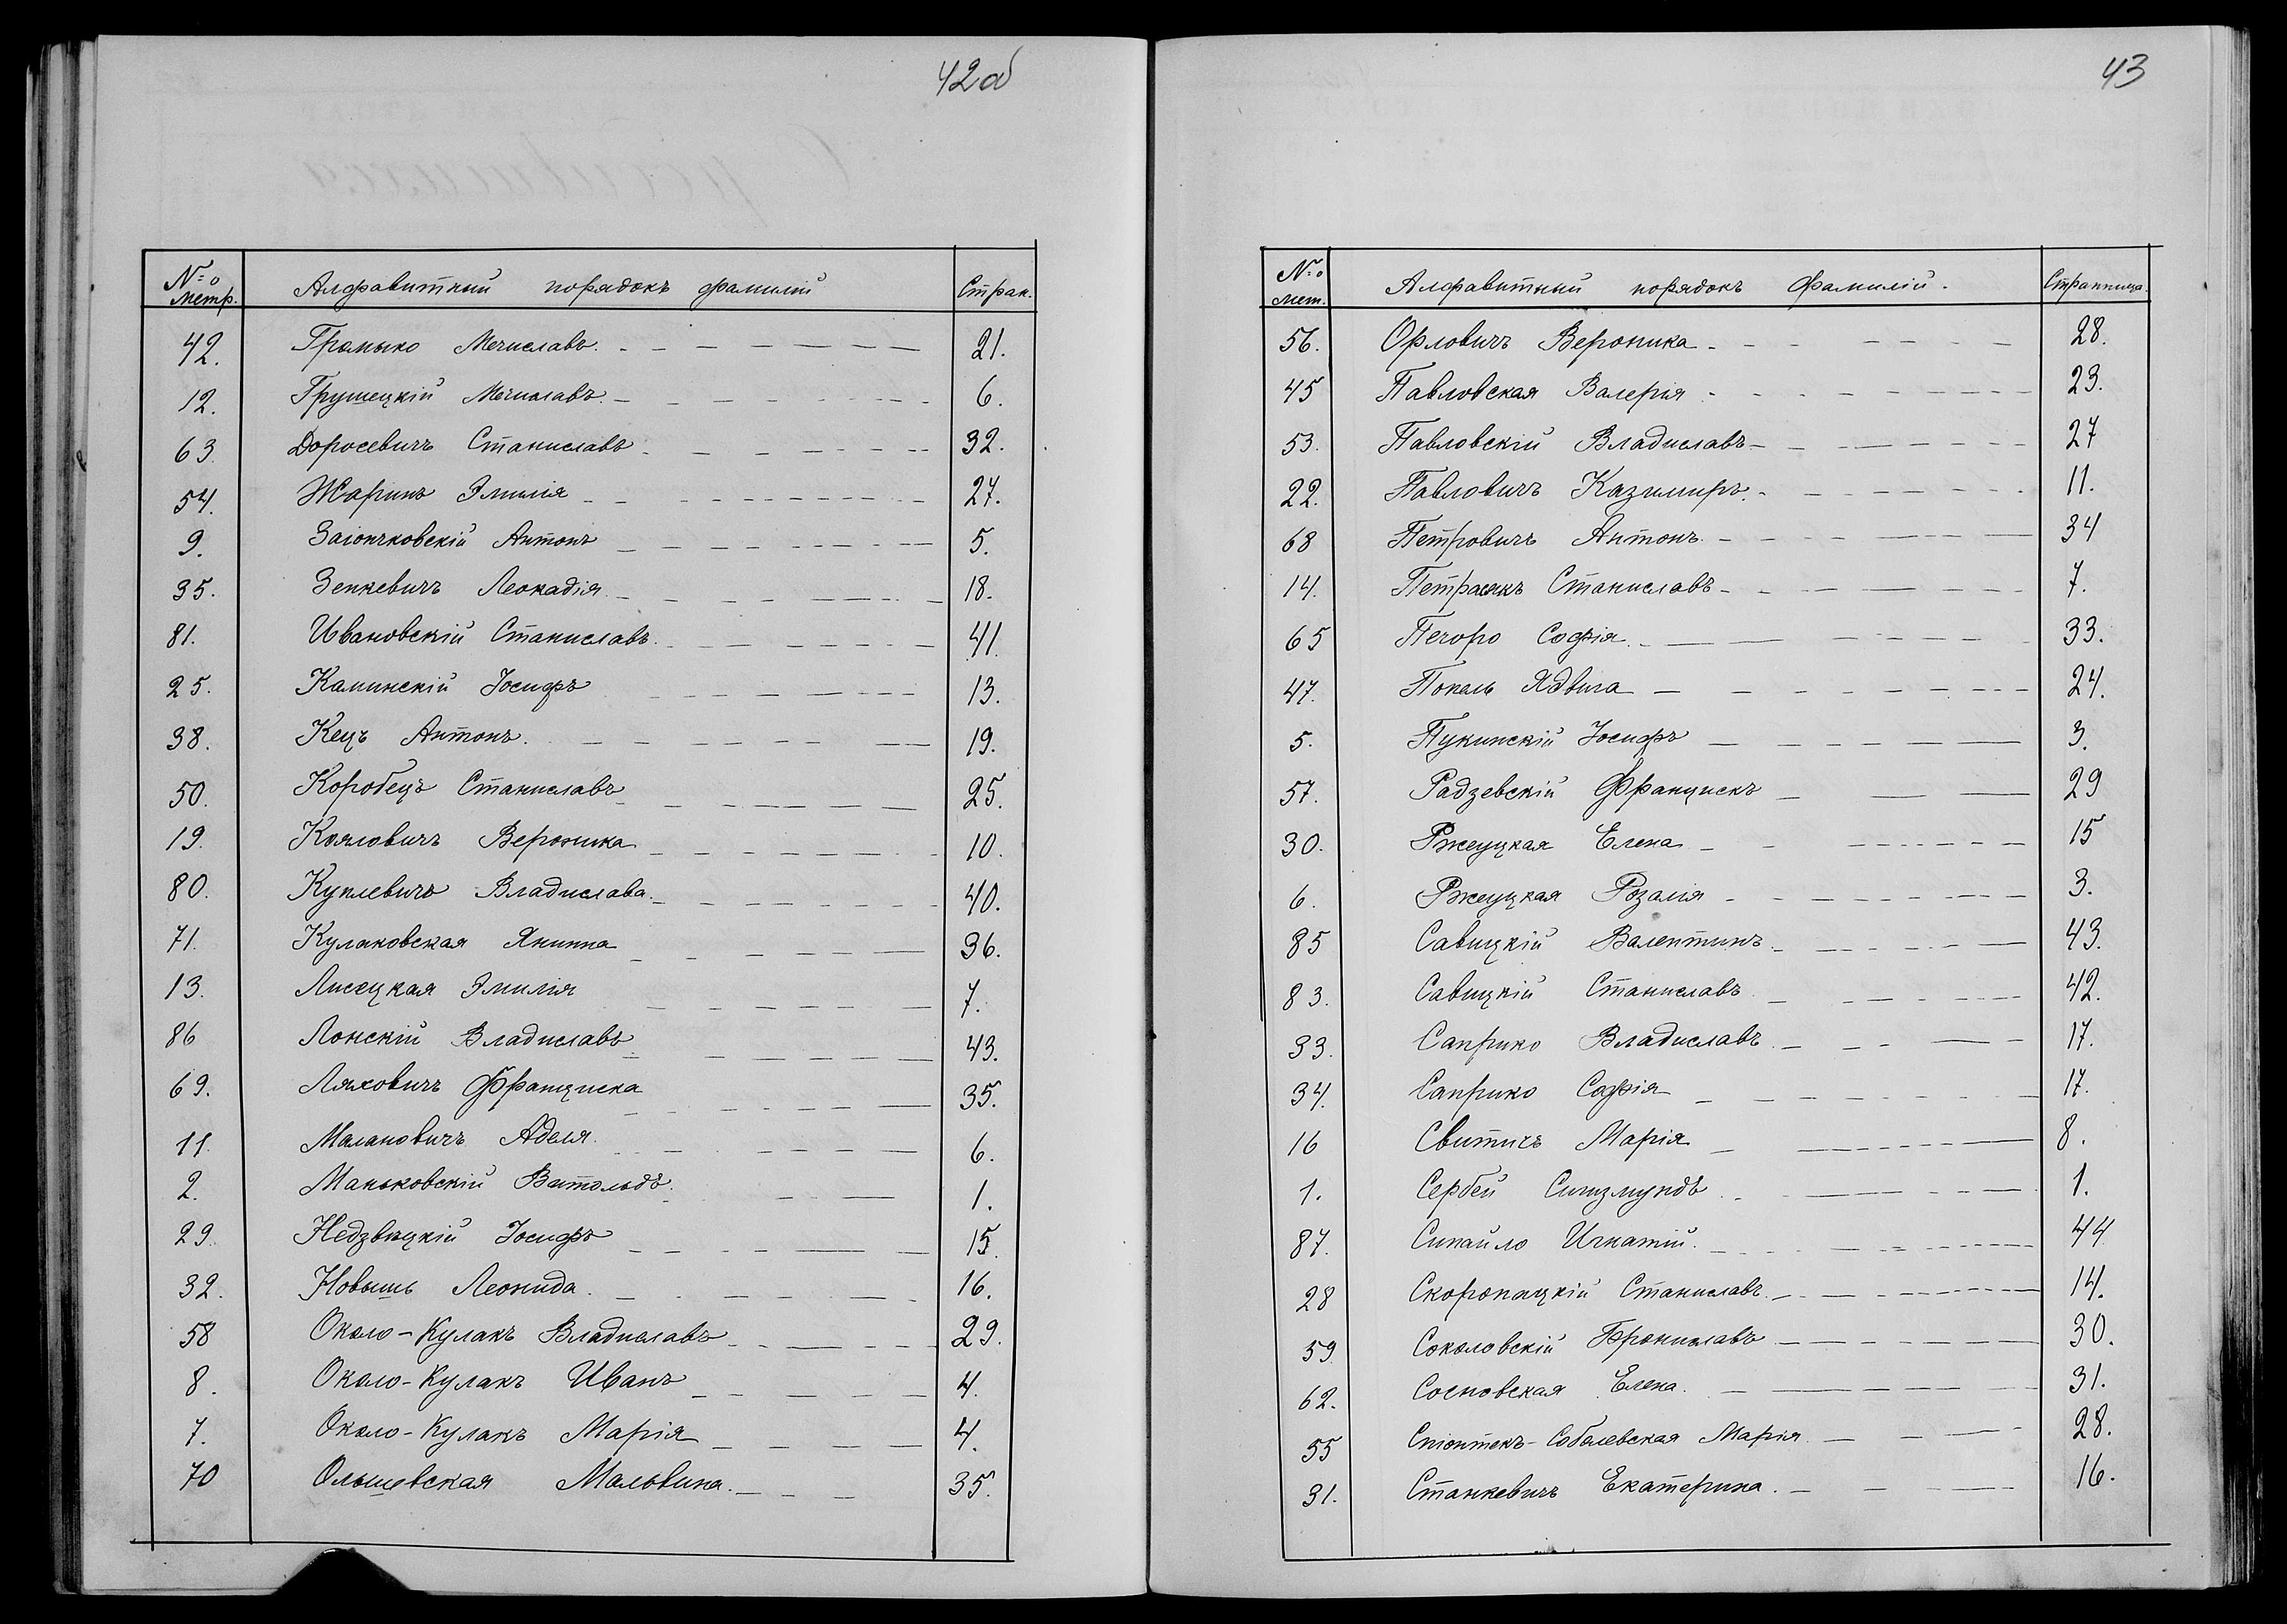 42об
№о метр. Алфавитный порядокъ фамилій Стран.
42. Громыко Мечиславъ. 21.
12. Грушецкій Мечиславъ. 6.
63 Доросевичъ Станиславъ 32.
54. Жаринъ Эмилія 27.
9. Заіончковскій Антонъ 5.
35. Зенкевичъ Леокадія 18.
81. Ивановскій Станиславъ. 41.
25. Каминскій Іосифъ 13.
38. Кецъ Антонъ. 19.
50. Коробецъ Станиславъ 25.
19. Кояловичъ Вероника 10.
80. Куплевичъ Владислава. 40.
71. Кулаковская Янинна 36.
13. Лисецкая Эмилія 7.
86 Лонскій Владиславъ 43.
69. Ляховичъ Франциска 35.
11. Малановичъ Аделя. 6.
2. Маньковскій Витольдъ. 1.
29. Недзвѣцкій Іосифъ 15.
32. Новышъ Леонида. 16.
58 Около-Кулакъ Владиславъ 29.
8. Около-Кулакъ Иванъ 4.
7. Около-Кулакъ Марія 4.
70 Ольшевская Мальвина. 35.
43
№о мет. Алфавитный порядокъ Фамилій. Странница.
56. Орловичъ Вероника 28.
45 Павловская Валерія 23.
53. Павловскій Владиславъ 27
22. Павловичъ Казимиръ. 11.
68 Петровичъ Антонъ. 34
14. Петрашкъ Станиславъ 7.
65 Печоро Софія. 33.
47. Покаль Ядвига 24.
5. Пукинскій Іосифъ 3.
57. Радзевскій Францискъ 29
30. Ржеуцкая Елена 15
6. Ржеуцкая Розалія 3.
85 Савицкій Валентинъ. 43.
83. Савицкій Станиславъ 42.
33. Саприко Владиславъ. 17.
34. Саприко Софія 17.
16 Свитичъ Марія 8.
1. Сербей Сигизмундъ 1.
87. Сипайло Игнатій. 44
28 Скоропацкій Станиславъ. 14.
59. Соколовскій Брониславъ 30.
62. Сосновская Елена. 31.
55 Спіонтекъ-Соболевская Марія 28.
31. Станкевичъ Екатерина. 16.